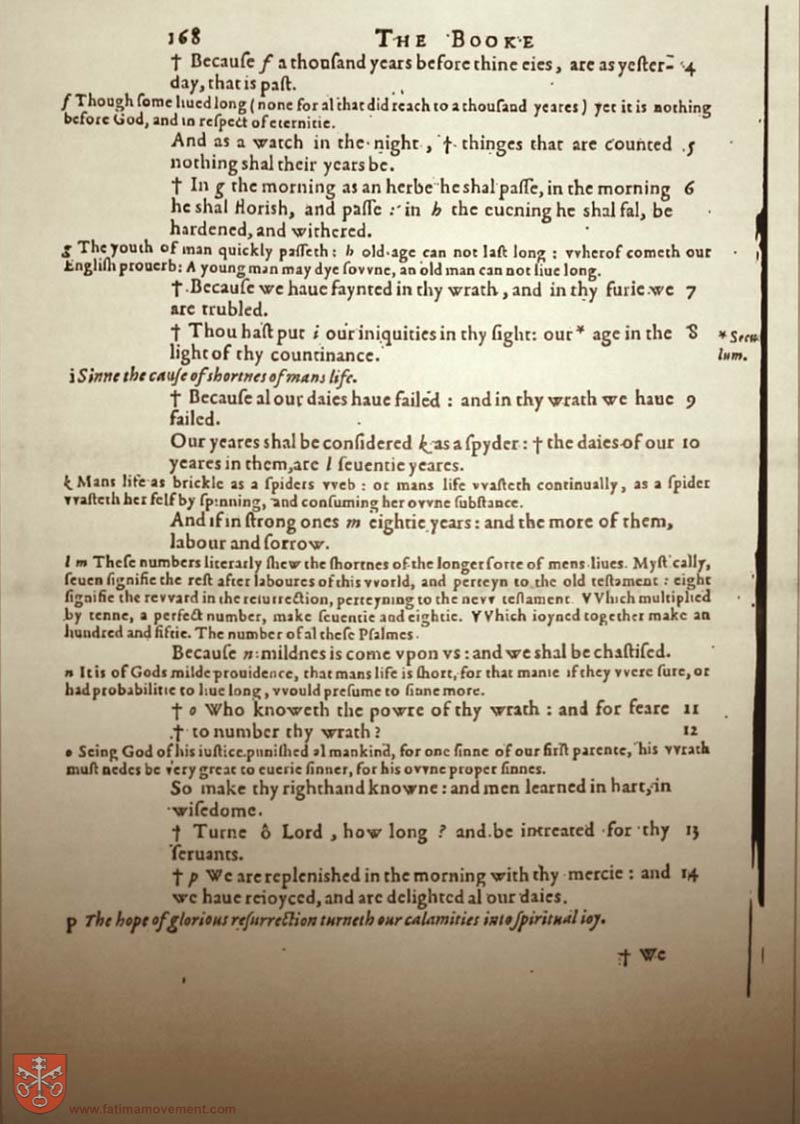 168 THE BOOKE
† Becauſe f a thouſand years before thine eies, are as yeſter- 4
day, that is paſt.
f Though ſome liued long (none for al that did reach to a thouſand yeares) yet it is nothing
before God, and in reſpect of eternitie.
And as a watch in the night, † thinges that are counted 5
nothing shal their years be.
† In g the morning as an herbe he shal paſſe, in the morning 6
he shal floriſh, and paſſe : in h the euening he shal fal, be
hardened, and withered.
g The youth of man quickly paſſeth: h old age can not laſt long : vvherof cometh our
Engliſh prouerb: A young man may dye ſovvne, an old man can not liue long.
† Becauſe we haue faynted in thy wrath, and in thy furie we 7
are trubled.
† Thou haſt put i our iniquities in thy ſight: our * age in the 8 * Secu
light of thy countinance. lum.
i Sinne the cauſe of shortnes of mans life.
† Becauſe al our daies haue failed : and in thy wrath we haue 9
failed.
Our yeares shal be conſidered k as a ſpyder : † the daies of our 10
yeares in them, are l ſeuentie yeares.
k Mans life as brickle as a ſpiders vveb : or mans life vvaſteth continually, as a ſpider
vvaſteth her ſelf by ſpinning, and conſuming her ovvne ſubſtance.
And if in ſtrong ones m eightie years : and the more of them,
labour and ſorrow.
l m Theſe numbers literarly ſhew the ſhortnes of the longer ſorte of mens liues. Myſtically,
ſeuen ſignifie the reſt after laboures of this vvorld, and perteyn to the old teſtament : eight
ſignifie the revvard in the reſurrection, perteyning to the nevv teſtament. VVhich multiplied
by tenne, a perfect number, make ſeuentie and eightie. VVhich ioyned together make an
hundred and fiftie. The number of al theſe Pſalmes.
Becauſe n mildnes is come vpon vs : and we shal be chaſtiſed.
n It is of Gods milde prouidence, that mans life is ſhort, for that manie if they vvere ſure, or
had probabilitie to liue long, vvould preſume to ſinne more.
† o Who knoweth the powre of thy wrath : and for feare 11
† to number thy wrath? 12
o Seing God of his iuſtice puniſhed al mankind, for one ſinne of our firſt parente, his vvrath
muſt nedes be very great to euerie ſinner, for his ovvne proper ſinnes.
So make thy righthand knowne : and men learned in hart, in
wiſedome.
† Turne ô Lord, how long ? and be intreated for thy 13
ſeruants.
† p We are repleniſhed in the morning with thy mercie : and 14
we haue reioyced, and are delighted al our daies.
p The hope of glorious reſurrection turneth our calamities into ſpiritual ioy.
† We
www.fatimamovement.com